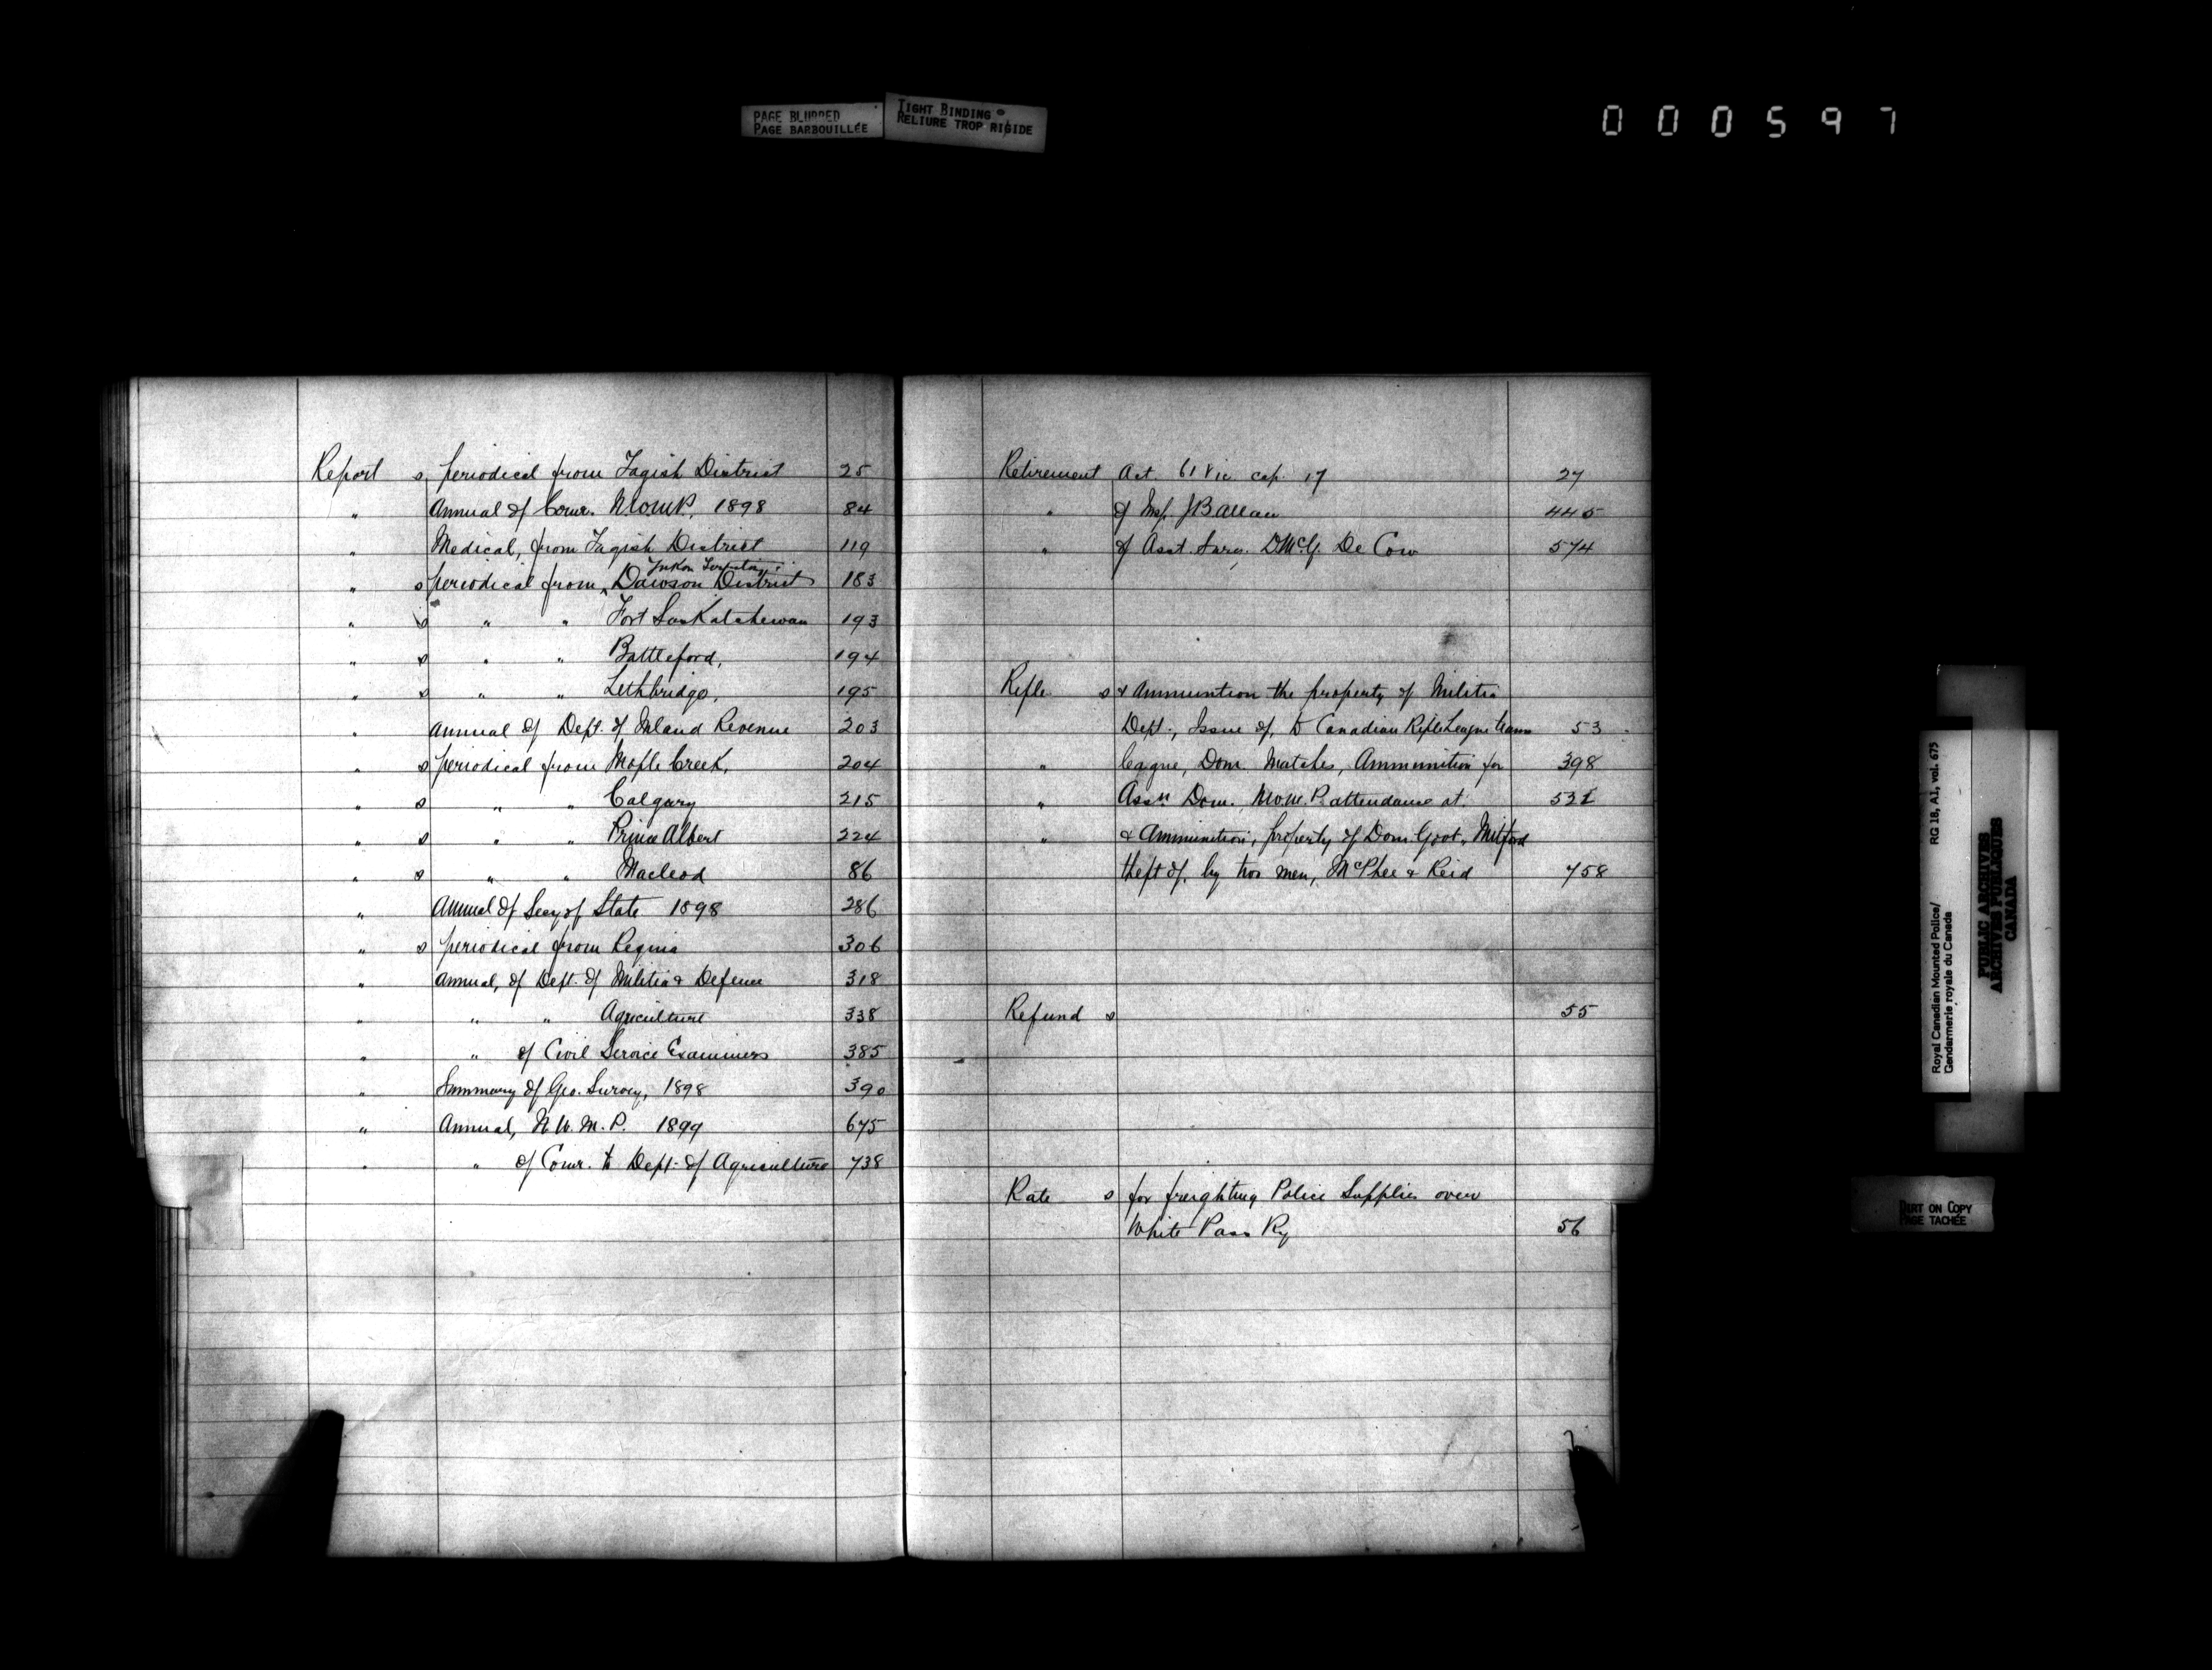 PAGE BLURRED
PAGE BARBOUILLÉE
TIGHT BINDING
RELIURE TROP RIGIDE
000597
Report s, periodical from Tagish District 25
" Annual of Comr. N.W.M.P., 1898 84
" Medical, from Tagish District 119
Yukon Territory
" s periodical from Dawson District 183
" s " " Fort Saskatchewan 193
" s " " Battleford, 194
" s " " Lethbridge, 195
" Annual of Dept. of Inland Revenue 203
" s periodical from Maple Creek, 204
" s " " Calgary 215
" s " " Prince Albert 224
" s " " Macleod 86
" Annual of Secy of State 1898 286
" s periodical from Regina 306
" Annual, of Dept. of Militia & Defence 318
" " " Agriculture 338
" " of Civil Service Examiners 385
" Summary of Geo. Survey, 1898 390
" Annual, N.W.M.P. 1899 675
" " of Comr. to Dept. of Agriculture 738
Retirement Act. 61 Vic. cap. 17 27
" of Insp. J B Allan 445
" of Asst. Surg. D McG. De Cow 574
Rifle s & Ammunition the property of Militia
Dept., Issue of, to Canadian Rifle League teams 53
" League, Dom. Matches, Ammunition for 398
" Assn Dom. N.W.M.P. attendance at 531
" & Ammunition, property of Dom. Govt.
theft of, by two men, McPhee & Reid 758
Refund s 55
Rate s for freighting Police Supplies over
White Pass Ry 56
Royal Canadian Mounted Police/
Gendarmerie royale du Canada
RG 18, A1, vol. 675
PUBLIC ARCHIVES
ARCHIVES PUBLIQUES
CANADA
DIRT ON COPY
PAGE TACHÉE